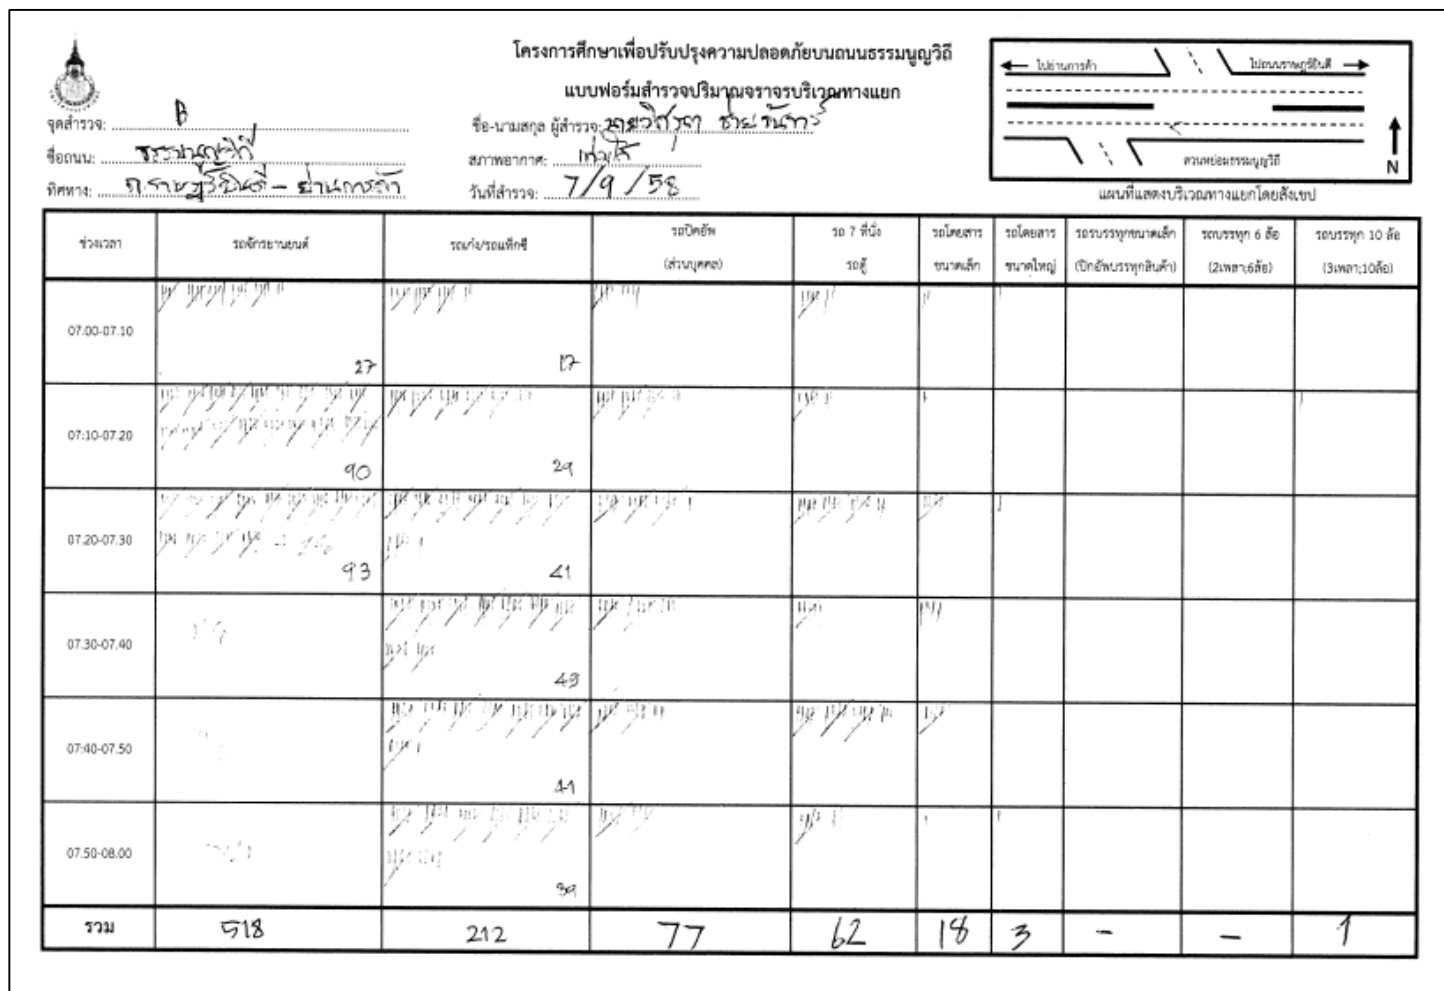 โครงการศึกษาเพื่อปรับปรุงความปลอดภัยบนถนนธรรมนูญวิถี
แบบฟอร์มสำรวจปริมาณจราจรบริเวณทางแยก
จุดสำรวจ: B
ชื่อ-นามสกุล ผู้สำรวจ:
ชื่อถนน: ธรรมนูญวิถี
สภาพอากาศ:
ทิศทาง: ถ.ราษฎร์ยินดี - ย่านการค้า
วันที่สำรวจ: 7/9/58
ไปย่านการค้า
ไปถนนราษฎร์ยินดี
สวนหย่อมธรรมนูญวิถี
N
แผนที่แสดงบริเวณทางแยกโดยสังเขป
ช่วงเวลา รถจักรยานยนต์ รถเก๋ง/รถแท็กซี่ รถปิคอัพ (ส่วนบุคคล) รถ 7 ที่นั่ง รถตู้ รถโดยสาร ขนาดเล็ก รถโดยสาร ขนาดใหญ่ รถรบรรทุกขนาดเล็ก (ปิกอัพบรรทุกสินค้า) รถบรรทุก 6 ล้อ (2เพลา;6ล้อ) รถบรรทุก 10 ล้อ (3เพลา;10ล้อ)
07.00-07.10 27 17
07:10-07.20 90 29
07.20-07.30 93 41
07.30-07.40
07:40-07.50 41
07.50-08.00 39
รวม 518 212 77 62 18 3 - - 1